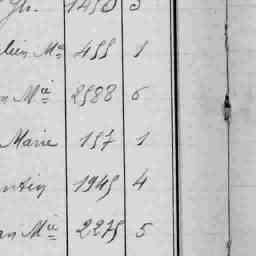 1450 3
Mie 455 1
Mie 2588 6
Marie 157 1
1945 4
an Mie 2275 5